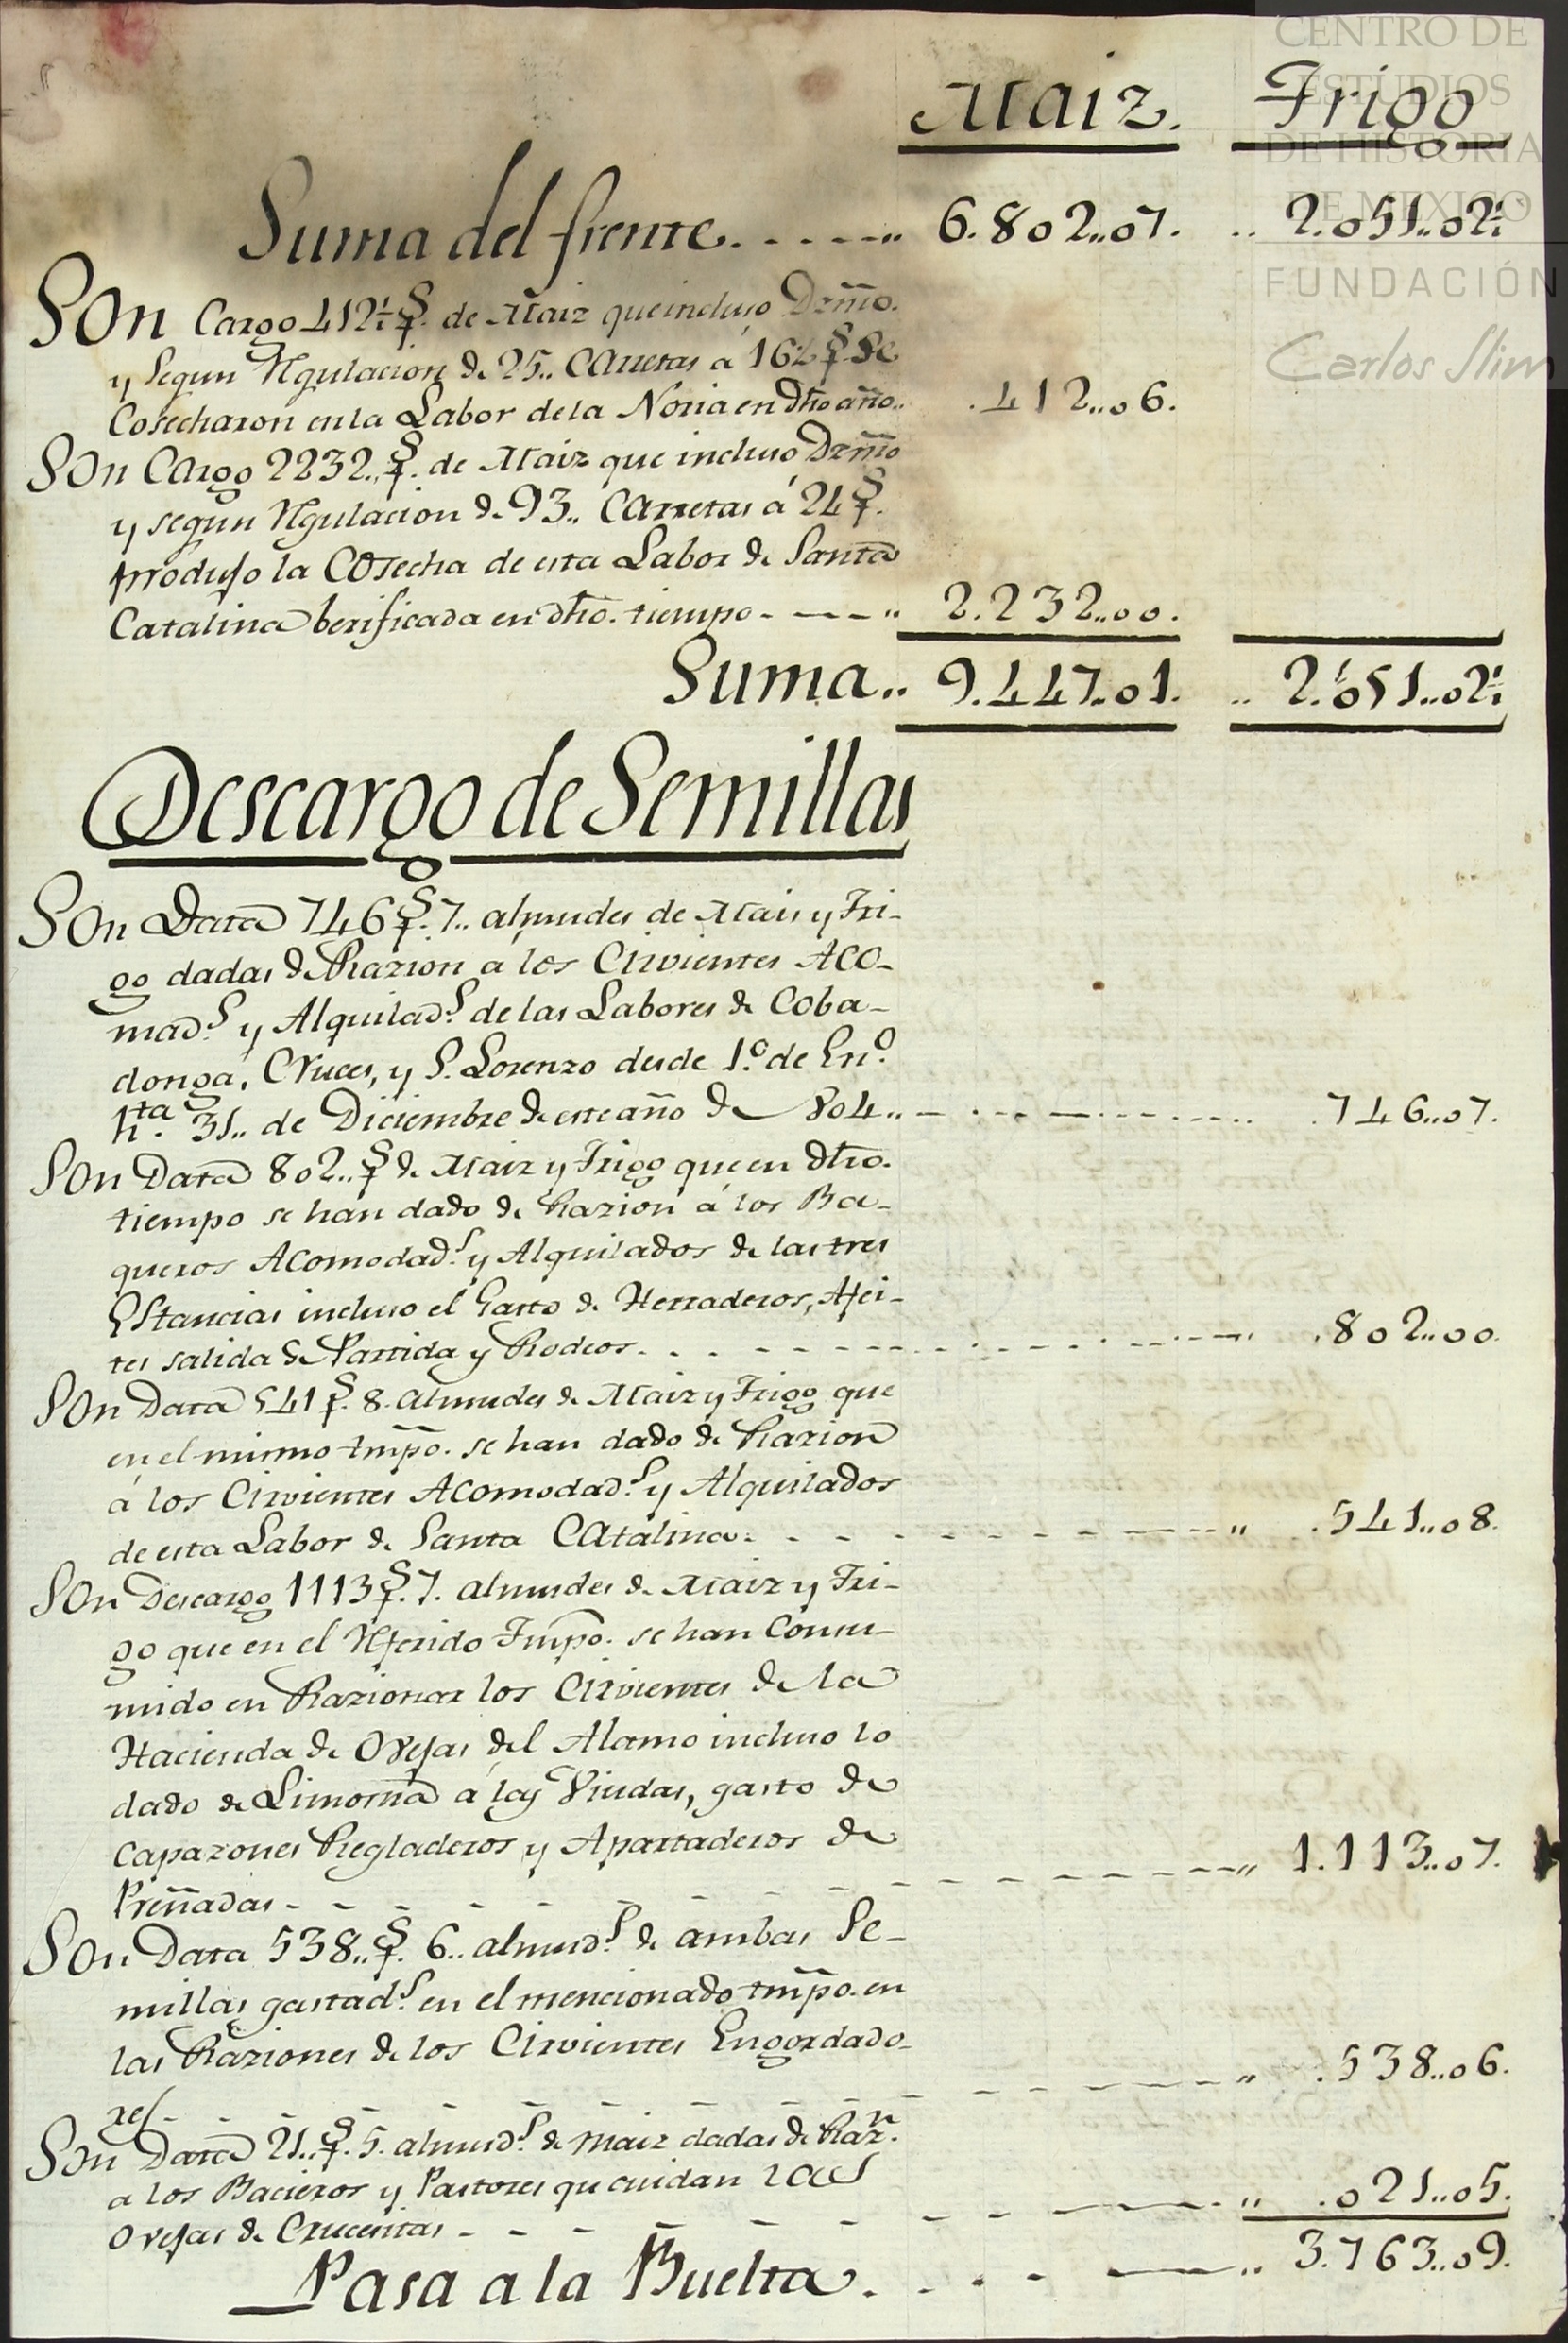 CENTRO DE
ESTUDIOS
DE HISTORIA
DE MEXICO
FUNDACIÓN
Carlos Slim
Maiz. Trigo
Suma del frente. - - - - -,, 6.802,,07. ,, 2.051,,02½
Son Cargo 412½ f.s de Maiz que incluso Dzm̃o.
y Segun Rgulacion de 25,, Carretas á 16½ f.s Se
Cosecharon en la Labor de la Noria en dho año,, .412,,06.
Son Cargo 2232,, f.s de Maiz que incluso Dzm̃o
y segun Rgulacion de 93,, Carretas á 24 f.s
produjo la Cosecha de esta Labor de Santa
Catalina berificada en dho. tiempo - - - -,, 2.232,,00.
Suma,, 9.447,,01. ,, 2.051,,02½
Descargo de Semillas
Son Data 746 f.s 7,, almudes de Mais y Tri-
go dadas de Razion á los Cirvientes Aco-
mad.s y Alquilad.s de las Labores de Coba-
donga, Cruces, y S. Lorenzo desde 1.º de En.º
h.ta 31,, de Diciembre de este año de 804,, - - - - - - - .746,,07.
Son Data 802,, f.s de Maiz y Trigo que en dho.
tiempo se han dado de Razion á los Ba-
queros Acomodad.s y Alquilados de las tres
Estancias incluso el Gasto de Herraderos, Afei-
tes salida de Partida y Rodeos. - - - - - - - .802,,00.
Son Data 541 f.s 8. almudes de Maiz y Trigo que
en el mismo tmp̃o. se han dado de Razion
á los Cirvientes Acomodad.s y Alquilados
de esta Labor de Santa Catalina. - - - - - - - ,, .541,,08.
Son Descargo 1113 f.s 7. almudes de Maiz y Tri-
go que en el Rferido Tmp̃o. se han Consu-
mido en Razionar los Cirvientes de la
Hacienda de Ovejas del Alamo incluso lo
dado de Limosna á las Viudas, gasto de
Capazones Regladeros y Apartaderos de
Preñadas - - - - - - - - - ,, 1.113,,07.
Son Data 538,, f.s 6,, almud.s de ambas Se-
millas gastad.s en el mencionado tmp̃o. en
las Raziones de los Cirvientes Engordado-
res - - - - - - - - - ,, .538,,06.
Son Data 21,, f.s 5. almud.s de maiz dadas de Raz.n
a los Bacieros y Pastores qu cuidan las
Ovejas de Crucentas - - - - - - - - ,, .021,,05.
Pasa a la Buelta. - - - - ,, 3.763,,09.